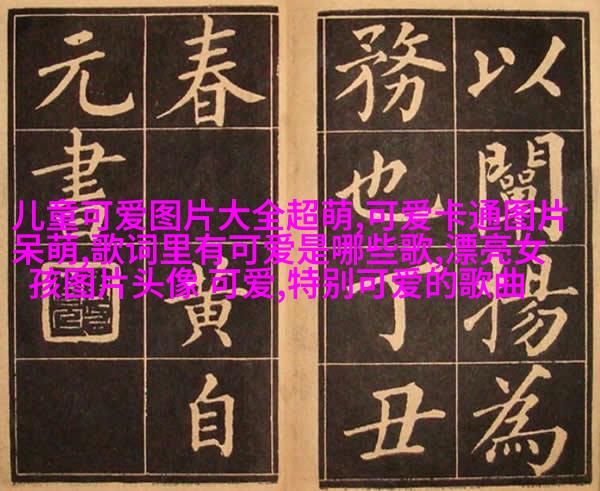 以闡揚為
務也丁丑
春黄自
元書
儿童可爱图片大全超萌,可爱卡通图片
呆萌,歌词里有可爱是哪些歌,漂亮女
孩图片头像 可爱,特别可爱的歌曲